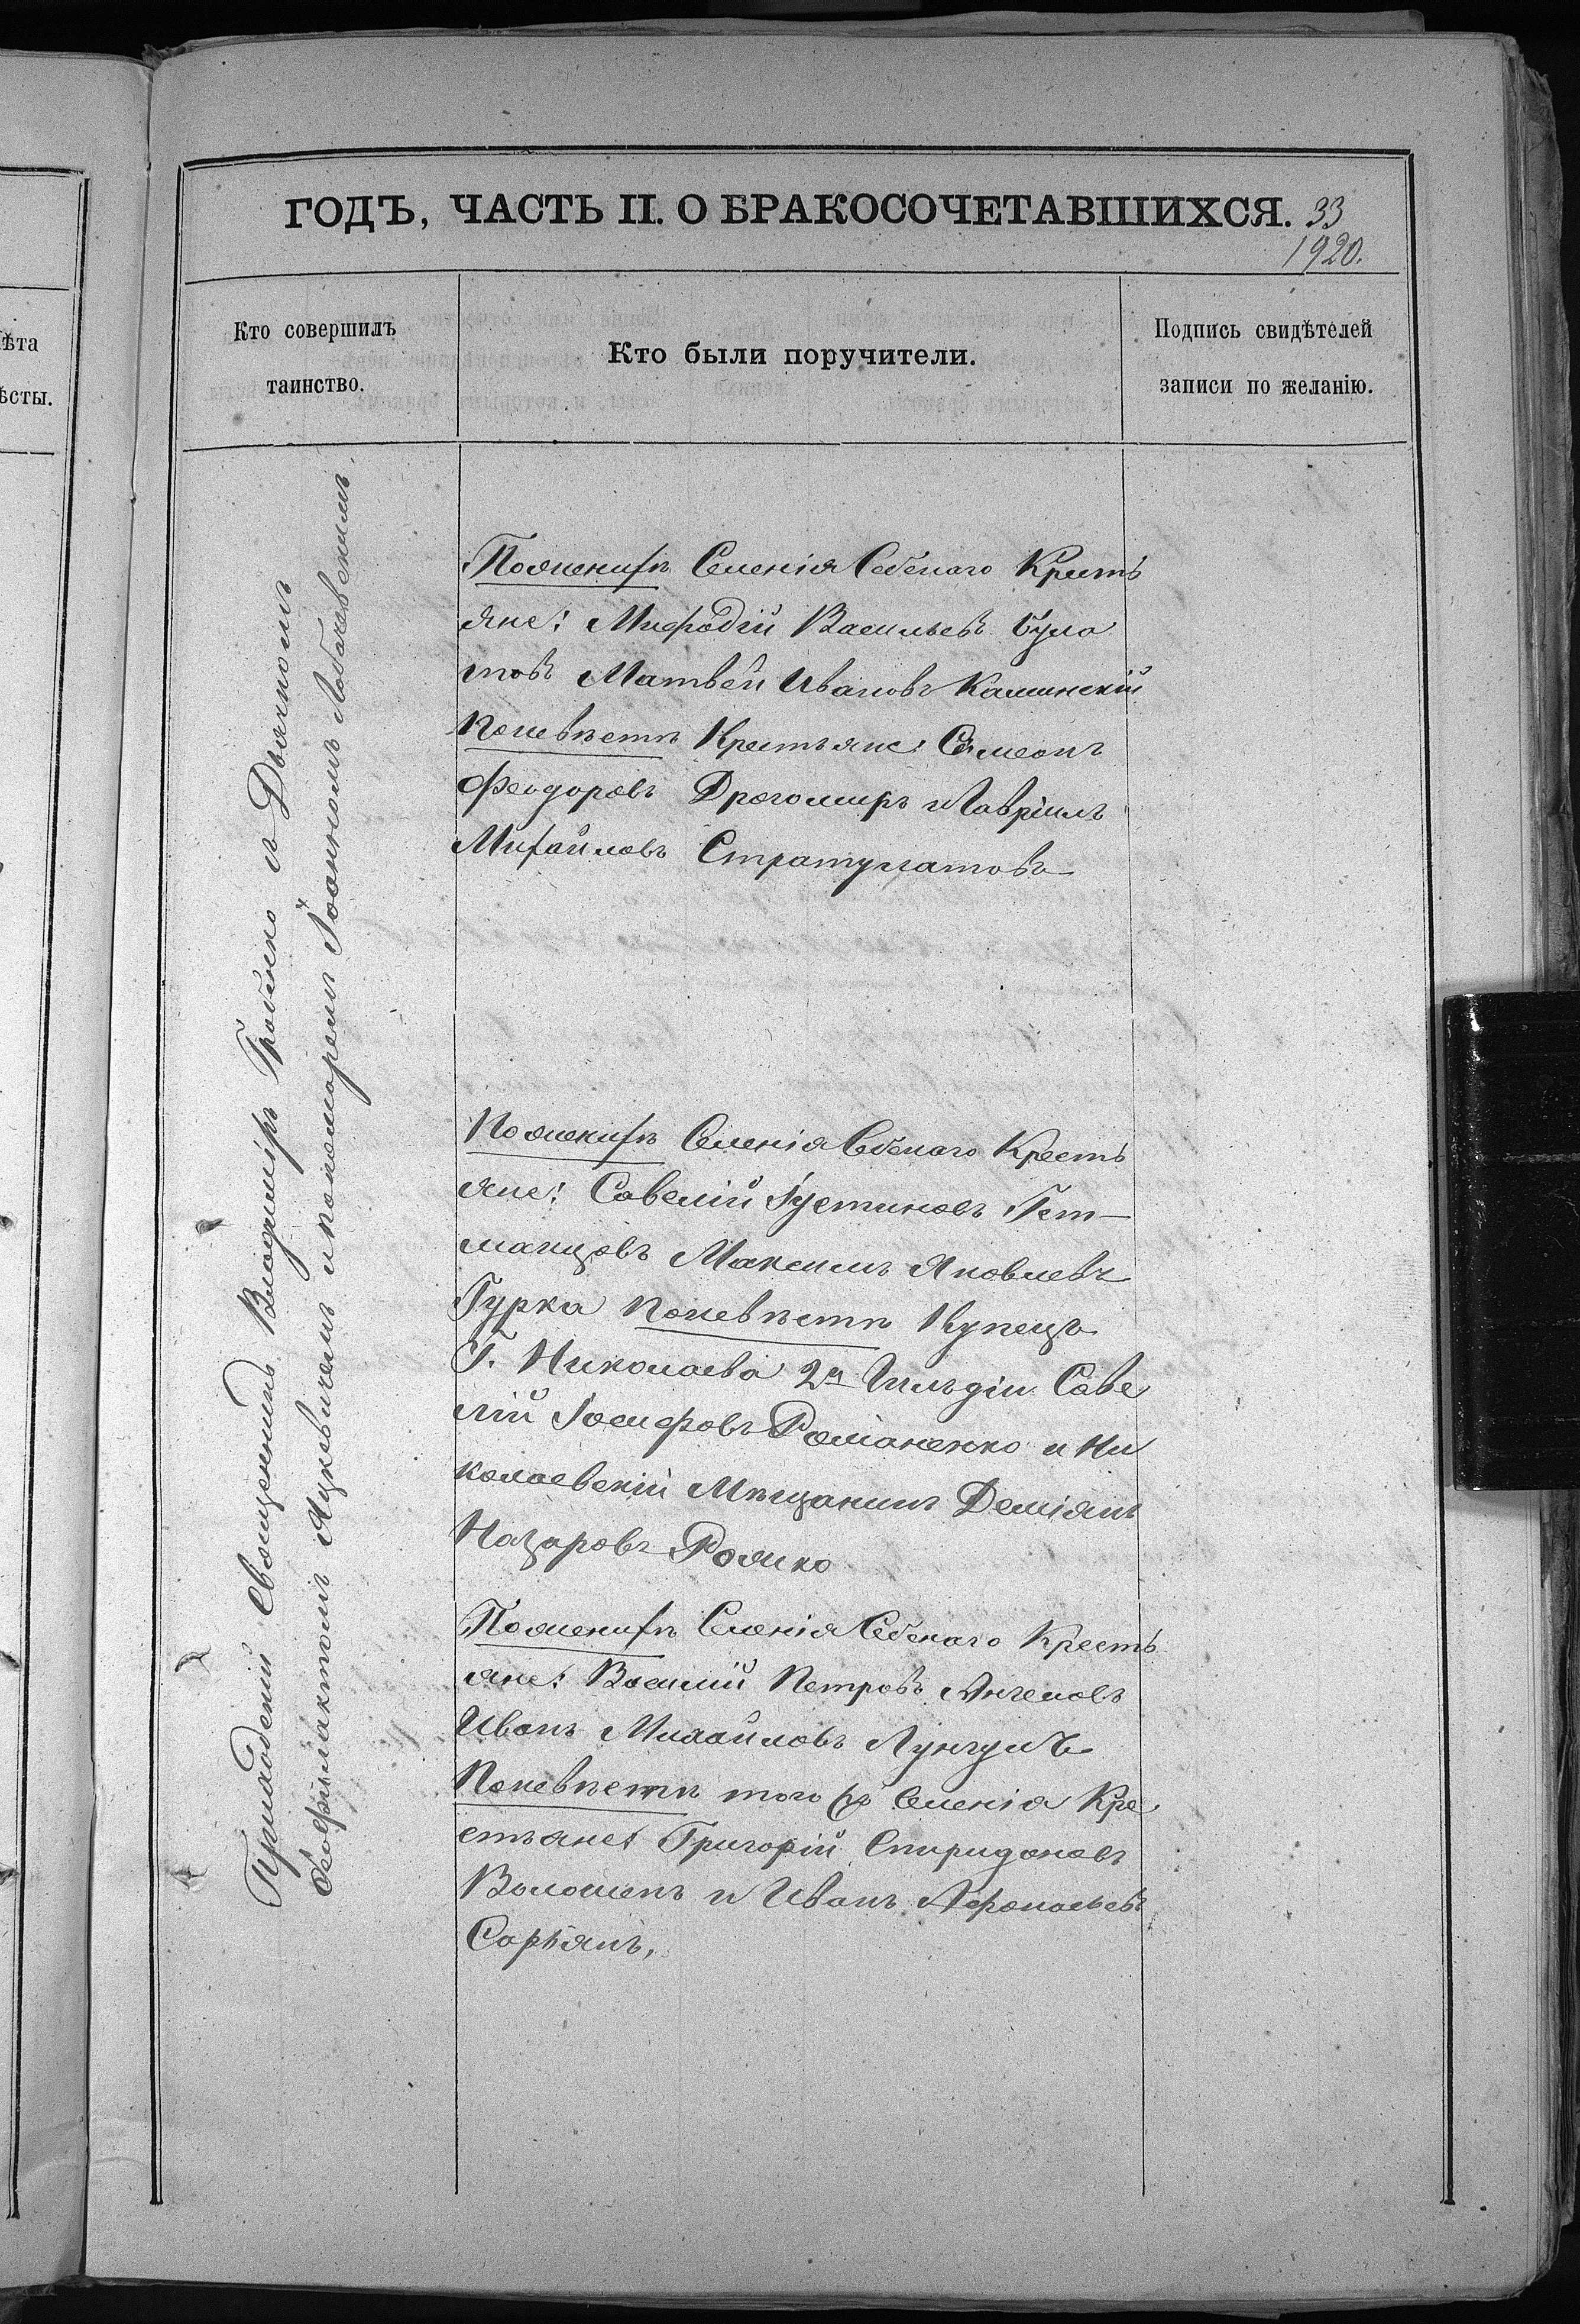 ГОДЪ, ЧАСТЬ II. О БРАКОСОЧЕТАВШИХСЯ. 33
1920.
ѣта
ѣсты.
Кто совершилъ
таинство.
Кто были поручители.
Подпись свидѣтелей
записи по желанію.
Приходскій Священникъ Владиміръ Гробенко съ Дьячкомъ
Феофилактомъ Яцкевичемъ и пономаремъ Іоанномъ Лобачевскимъ.
По женихѣ Селенія Себенаго Кресть
яне: Мифодій Васильевъ Була
товъ Матвей Ивановъ Каминскій
По невѣстѣ Крестьяне: Симеонъ
Феодоровъ Дрогомиръ и Гавріилъ
Михайловъ Стратулатовъ
По женихѣ Селенія Себенаго Кресть
яне: Савелій Іустиновъ Гет-
манцовъ Максимъ Яковлевъ
Гурка По невѣстѣ Купецъ
Г. Николаева 2й Гильдіи Саве
лій Іосифовъ Романенко и Ни
колаевскій Мѣщанинъ Деміянъ
Назаровъ Роянко
По женихѣ Селенія Себенаго Кресть
яне: Василій Петровъ Ангеловъ
Иванъ Михайловъ Лунгулъ
По невѣстѣ того жъ Селенія Кре
стьяне: Григорій Спиридоновъ
Волошенъ и Иванъ Афонасьевъ
Сарьянъ,